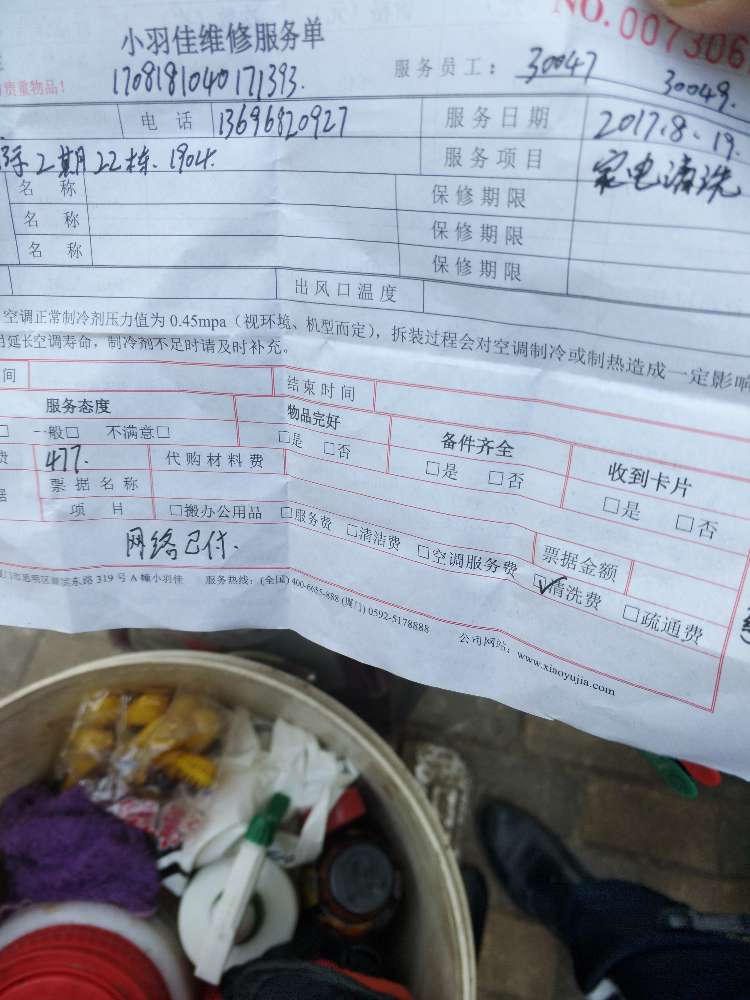 NO. 007306
小羽佳维修服务单
贵重物品!
1708181040171393.
服务员工: 30047 30049.
电 话 13696820927 服务日期 2017.8.19.
2期22栋.1904. 服务项目 家电清洗
名 称 保修期限
名 称 保修期限
名 称 保修期限
出风口温度
空调正常制冷剂压力值为 0.45mpa(视环境、机型而定),拆装过程会对空调制冷或制热造成一定影响
延长空调寿命,制冷剂不足时请及时补充。
间 结束时间
服务态度 物品完好 备件齐全 收到卡片
□ 一般□ 不满意□ □是 □否 □是 □否 □是 □否
费 477. 代购材料费
据 票据名称 票据金额
项 目 □搬办公用品 □服务费 □清洁费 □空调服务费 ☑清洗费 □疏通费
网络已付.
东路 319 号 A 幢小羽佳 服务热线:(全国) 400-6655-888 (厦门) 0592-5178888 公司网站:www.xiaoyujia.com